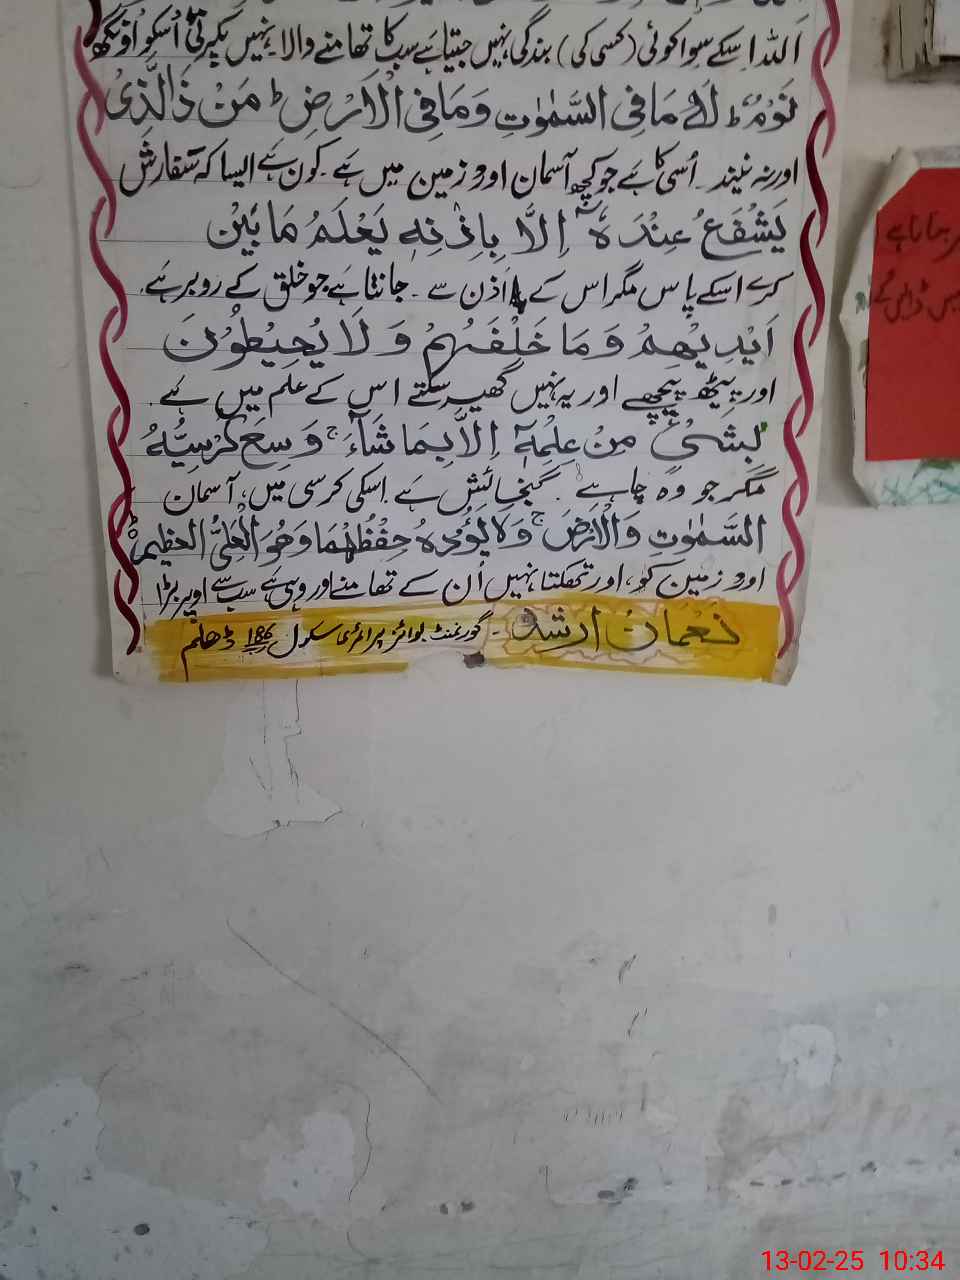 اللہ اسکے سوا کوئی (کسی کی) بندگی نہیں جیتا ہے سب کا تھامنے والا۔ نہیں پکڑتی اُسکو اُونگھ
نَوْمٌ ؕ لَهٗ مَا فِی السَّمٰوٰتِ وَمَا فِی الْاَرْضِ ؕ مَنْ ذَالَّذِیْ
اور نہ نیند ۔ اُسی کا ہے جو کچھ آسمان اور زمین میں ہے ۔ کون ہے ایسا کہ سفارش
یَشْفَعُ عِنْدَهٗۤ اِلَّا بِاِذْنِهٖ یَعْلَمُ مَا بَیْنَ
کرے اسکے پاس مگر اس کے اذن سے ۔ جانتا ہے جو خلق کے روبر ہے ۔
اَیْدِیْهِمْ وَمَا خَلْفَهُمْ وَ لَا یُحِیْطُوْنَ
اور پیٹھ پیچھے اور یہ نہیں گھیر سکتے اس کے علم میں ہے ۔
بِشَیْئٍ مِنْ عِلْمِهٖۤ اِلَّا بِمَا شَآءَ ۚ وَسِعَ كُرْسِیُّهُ
مگر جو وہ چاہے ۔ گنجائش ہے اسکی کرسی میں، آسمان
السَّمٰوٰتِ وَالْاَرْضَ ۚ وَلَا یَؤُدُهٗ حِفْظُهُمَا وَهُوَ الْعَلِیُّ العظیم ؕ
اور زمین کو، اور تھکتا نہیں اُن کے تھامنے اور وہی ہے سب سے اوپر بڑا
نعمان ارشد ۔ گورنمنٹ بوائز پرائمری سکول 186 رب ڈھلم
ہے
13-02-25 10:34